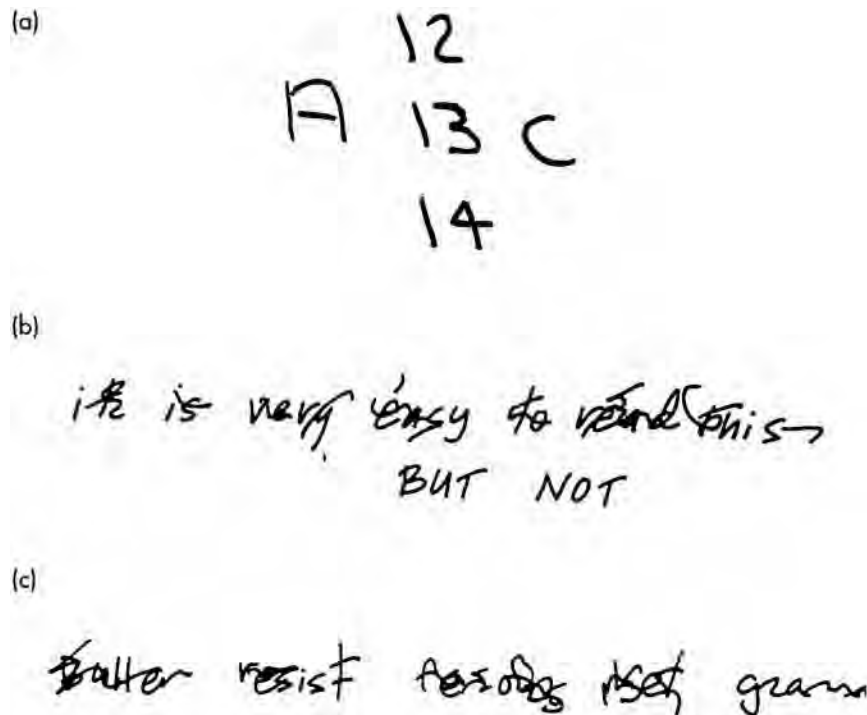 (a)
12
A 13 C
14
(b)
it is very easy to read this
BUT NOT
(c)
resist